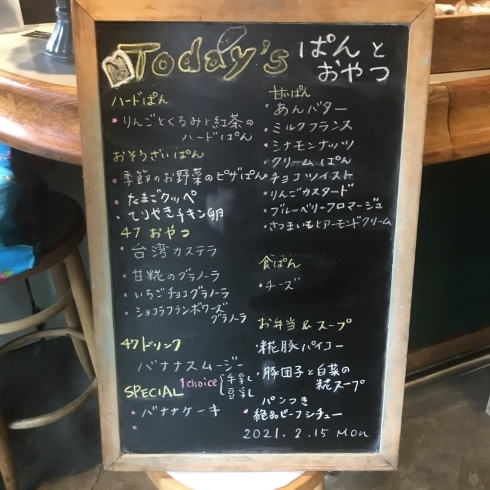 Today's ぱんと
おやつ
ハードぱん
・りんごとくるみと紅茶の
ハードぱん
おそうざいぱん
・季節のお野菜のピザぱん
・たまごクッペ
・てりやきチキン卵
47 おやつ
・台湾カステラ
・甘糀のグラノーラ
・いちごチョコグラノーラ
・ショコラフランボワーズ
グラノーラ
47ドリンク
バナナスムージー
1choice {牛乳 豆乳
SPECIAL
・バナナケーキ
甘いぱん
・あんバター
・ミルクフランス
・シナモンナッツ
・クリームぱん
・チョコツイスト
・りんごカスタード
・ブルーベリーフロマージュ
・さつまいもとアーモンドクリーム
食ぱん
・チーズ
お弁当&スープ
・糀豚パイコー
・豚団子と白菜の
糀スープ
パンつき
・絶品ビーフシチュー
2021.2.15 Mon